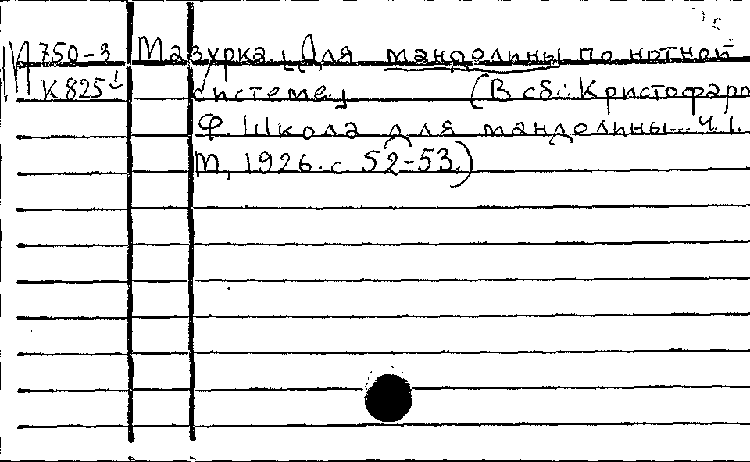 М 750-3 Мазурка. [Для мандолины по нотной
К825¹ системе] (В сб.: Кристофаро
Ф. Школа для мандолины... Ч.1.
М, 1926. с 52-53.)